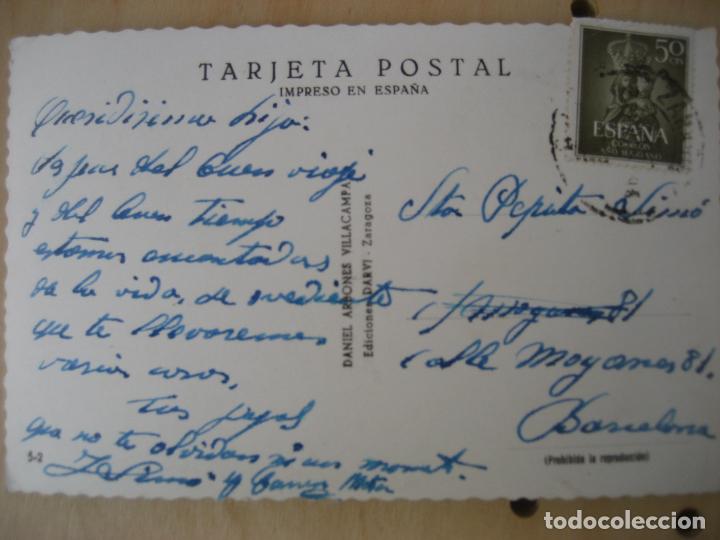 TARJETA POSTAL
IMPRESO EN ESPAÑA
50
CTS
ESPAÑA
CORREOS
AÑO MARIANO
Queridisima hija:
del buen viaje
y del buen tiempo
estamos encantados
de la vida, de
que te llevaremos
varias cosas,
tus papas
que no te olvidan ni un moment.
Simó y
DANIEL ARBONES VILLACAMPA
Ediciones DARVI - Zaragoza
Sta Pepita Simó
81
Calle Moyanes 81.
Barcelona
5-2
(Prohibida la reproducción)
todocoleccion